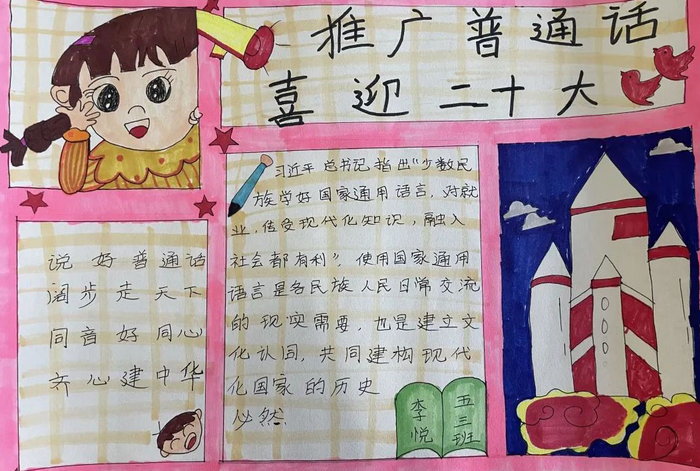 推广普通话
喜迎二十大
习近平总书记指出“少数民
族学好国家通用语言，对就
业，传受现代化知识，融入
社会都有利”，使用国家通用
语言是各民族人民日常交流
的现实需要，也是建立文
化认同，共同建构现代
化国家的历史
必然.
说好普通话
阔步走天下
同音好同心
齐心建中华
李悦
五三班